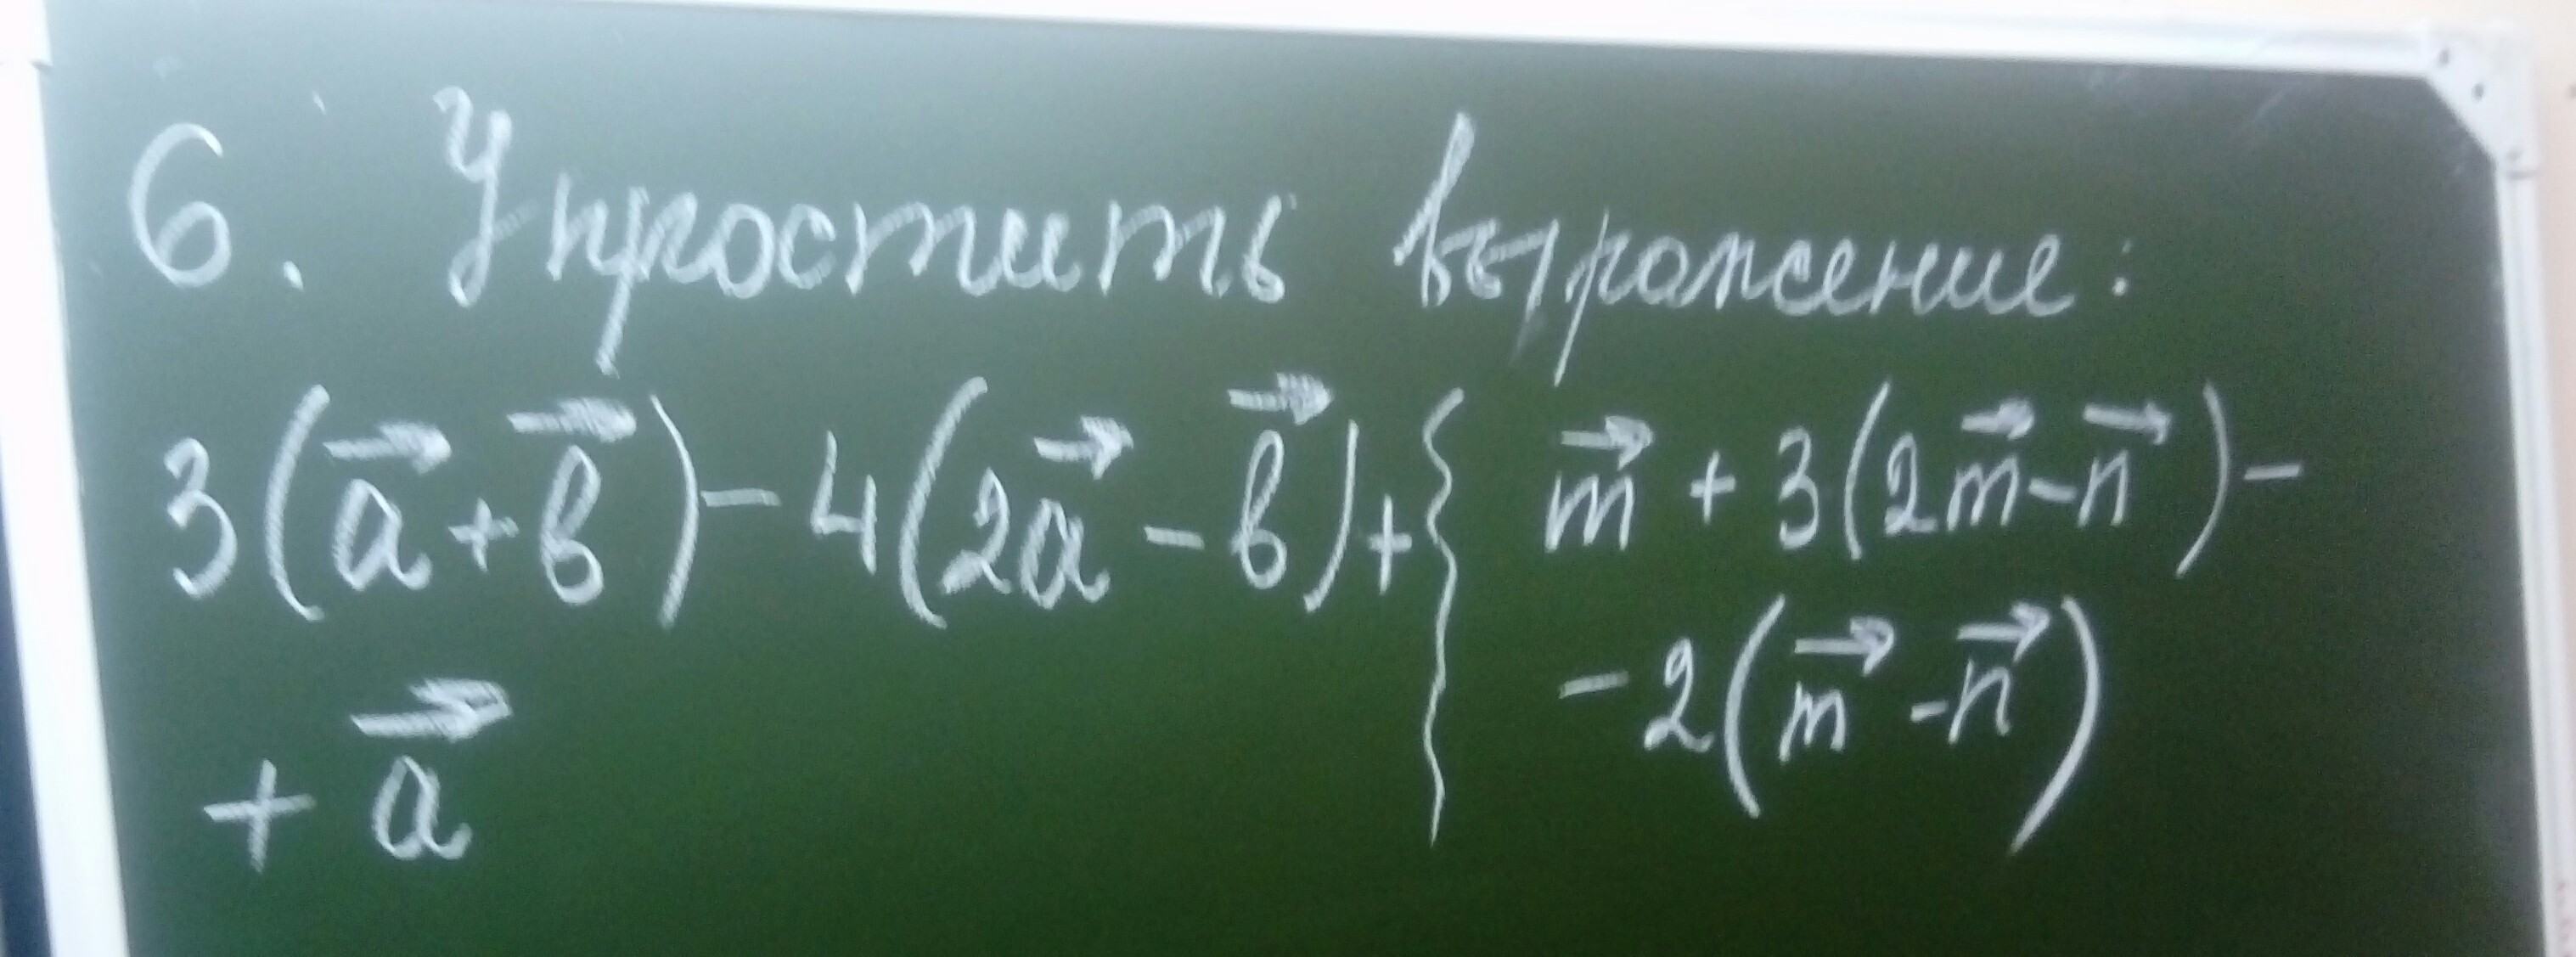 6. Упростить выражение:
3(a⃗+b⃗)-4(2a⃗-b⃗)+
+a⃗
m⃗+3(2m⃗-n⃗)-
-2(m⃗-n⃗)